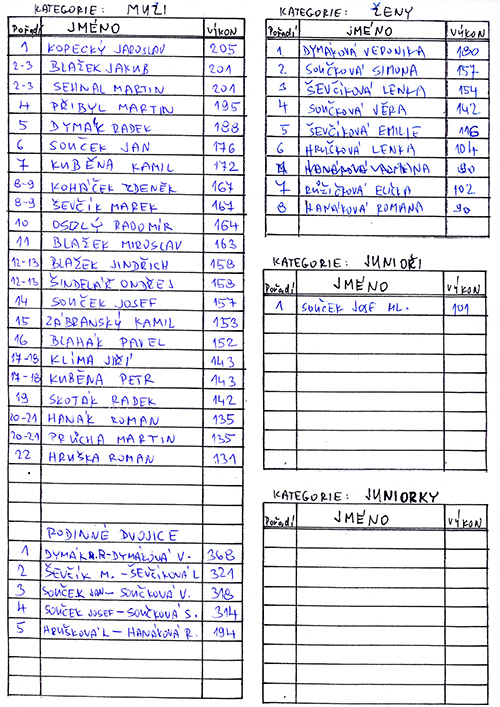 KATEGORIE: MUŽI
Pořadí JMÉNO VÝKON
1 KOPECKÝ JAROSLAV 205
2-3 BLAŽEK JAKUB 201
2-3 SEHNAL MARTIN 201
4 PŘIBYL MARTIN 195
5 DYMÁK RADEK 188
6 SOUČEK JAN 176
7 KUBĚNA KAMIL 172
8-9 KOHÁČEK ZDENĚK 167
8-9 ŠEVČÍK MAREK 167
10 OSOLÝ RADOMÍR 164
11 BLAŽEK MIROSLAV 163
12-13 BLAŽEK JINDŘICH 158
12-13 ŠINDELÁŘ ONDŘEJ 158
14 SOUČEK JOSEF 157
15 ZÁBRANSKÝ KAMIL 153
16 BLAHÁK PAVEL 152
17-18 KLÍMA JIŘÍ 143
17-18 KUBĚNA PETR 143
19 SKOTÁK RADEK 142
20-21 HANÁK ROMAN 135
20-21 PRŮCHA MARTIN 135
22 HRUŠKA ROMAN 131
RODINNÉ DVOJICE
1 DYMÁK R-DYMÁKOVÁ V. 368
2 ŠEVČÍK M. - ŠEVČÍKOVÁ L 321
3 SOUČEK JAN - SOUČKOVÁ V. 318
4 SOUČEK JOSEF - SOUČKOVÁ S. 314
5 HRUŠKOVÁ L - HANÁKOVÁ R. 194
KATEGORIE: ŽENY
Pořadí JMÉNO VÝKON
1 DYMÁKOVÁ VERONIKA 180
2 SOUČKOVÁ SIMONA 157
3 ŠEVČÍKOVÁ LENKA 154
4 SOUČKOVÁ VĚRA 142
5 ŠEVČÍKOVÁ EMILIE 116
6 HRUŠKOVÁ LENKA 104
7 HANÁKOVÁ ROMANA 90
7 RŮŽIČKOVÁ ELIŠKA 102
8 HANÁKOVÁ ROMANA 90
KATEGORIE: JUNIOŘI
Pořadí JMÉNO VÝKON
1 SOUČEK JOSEF ML. 101
KATEGORIE: JUNIORKY
Pořadí JMÉNO VÝKON